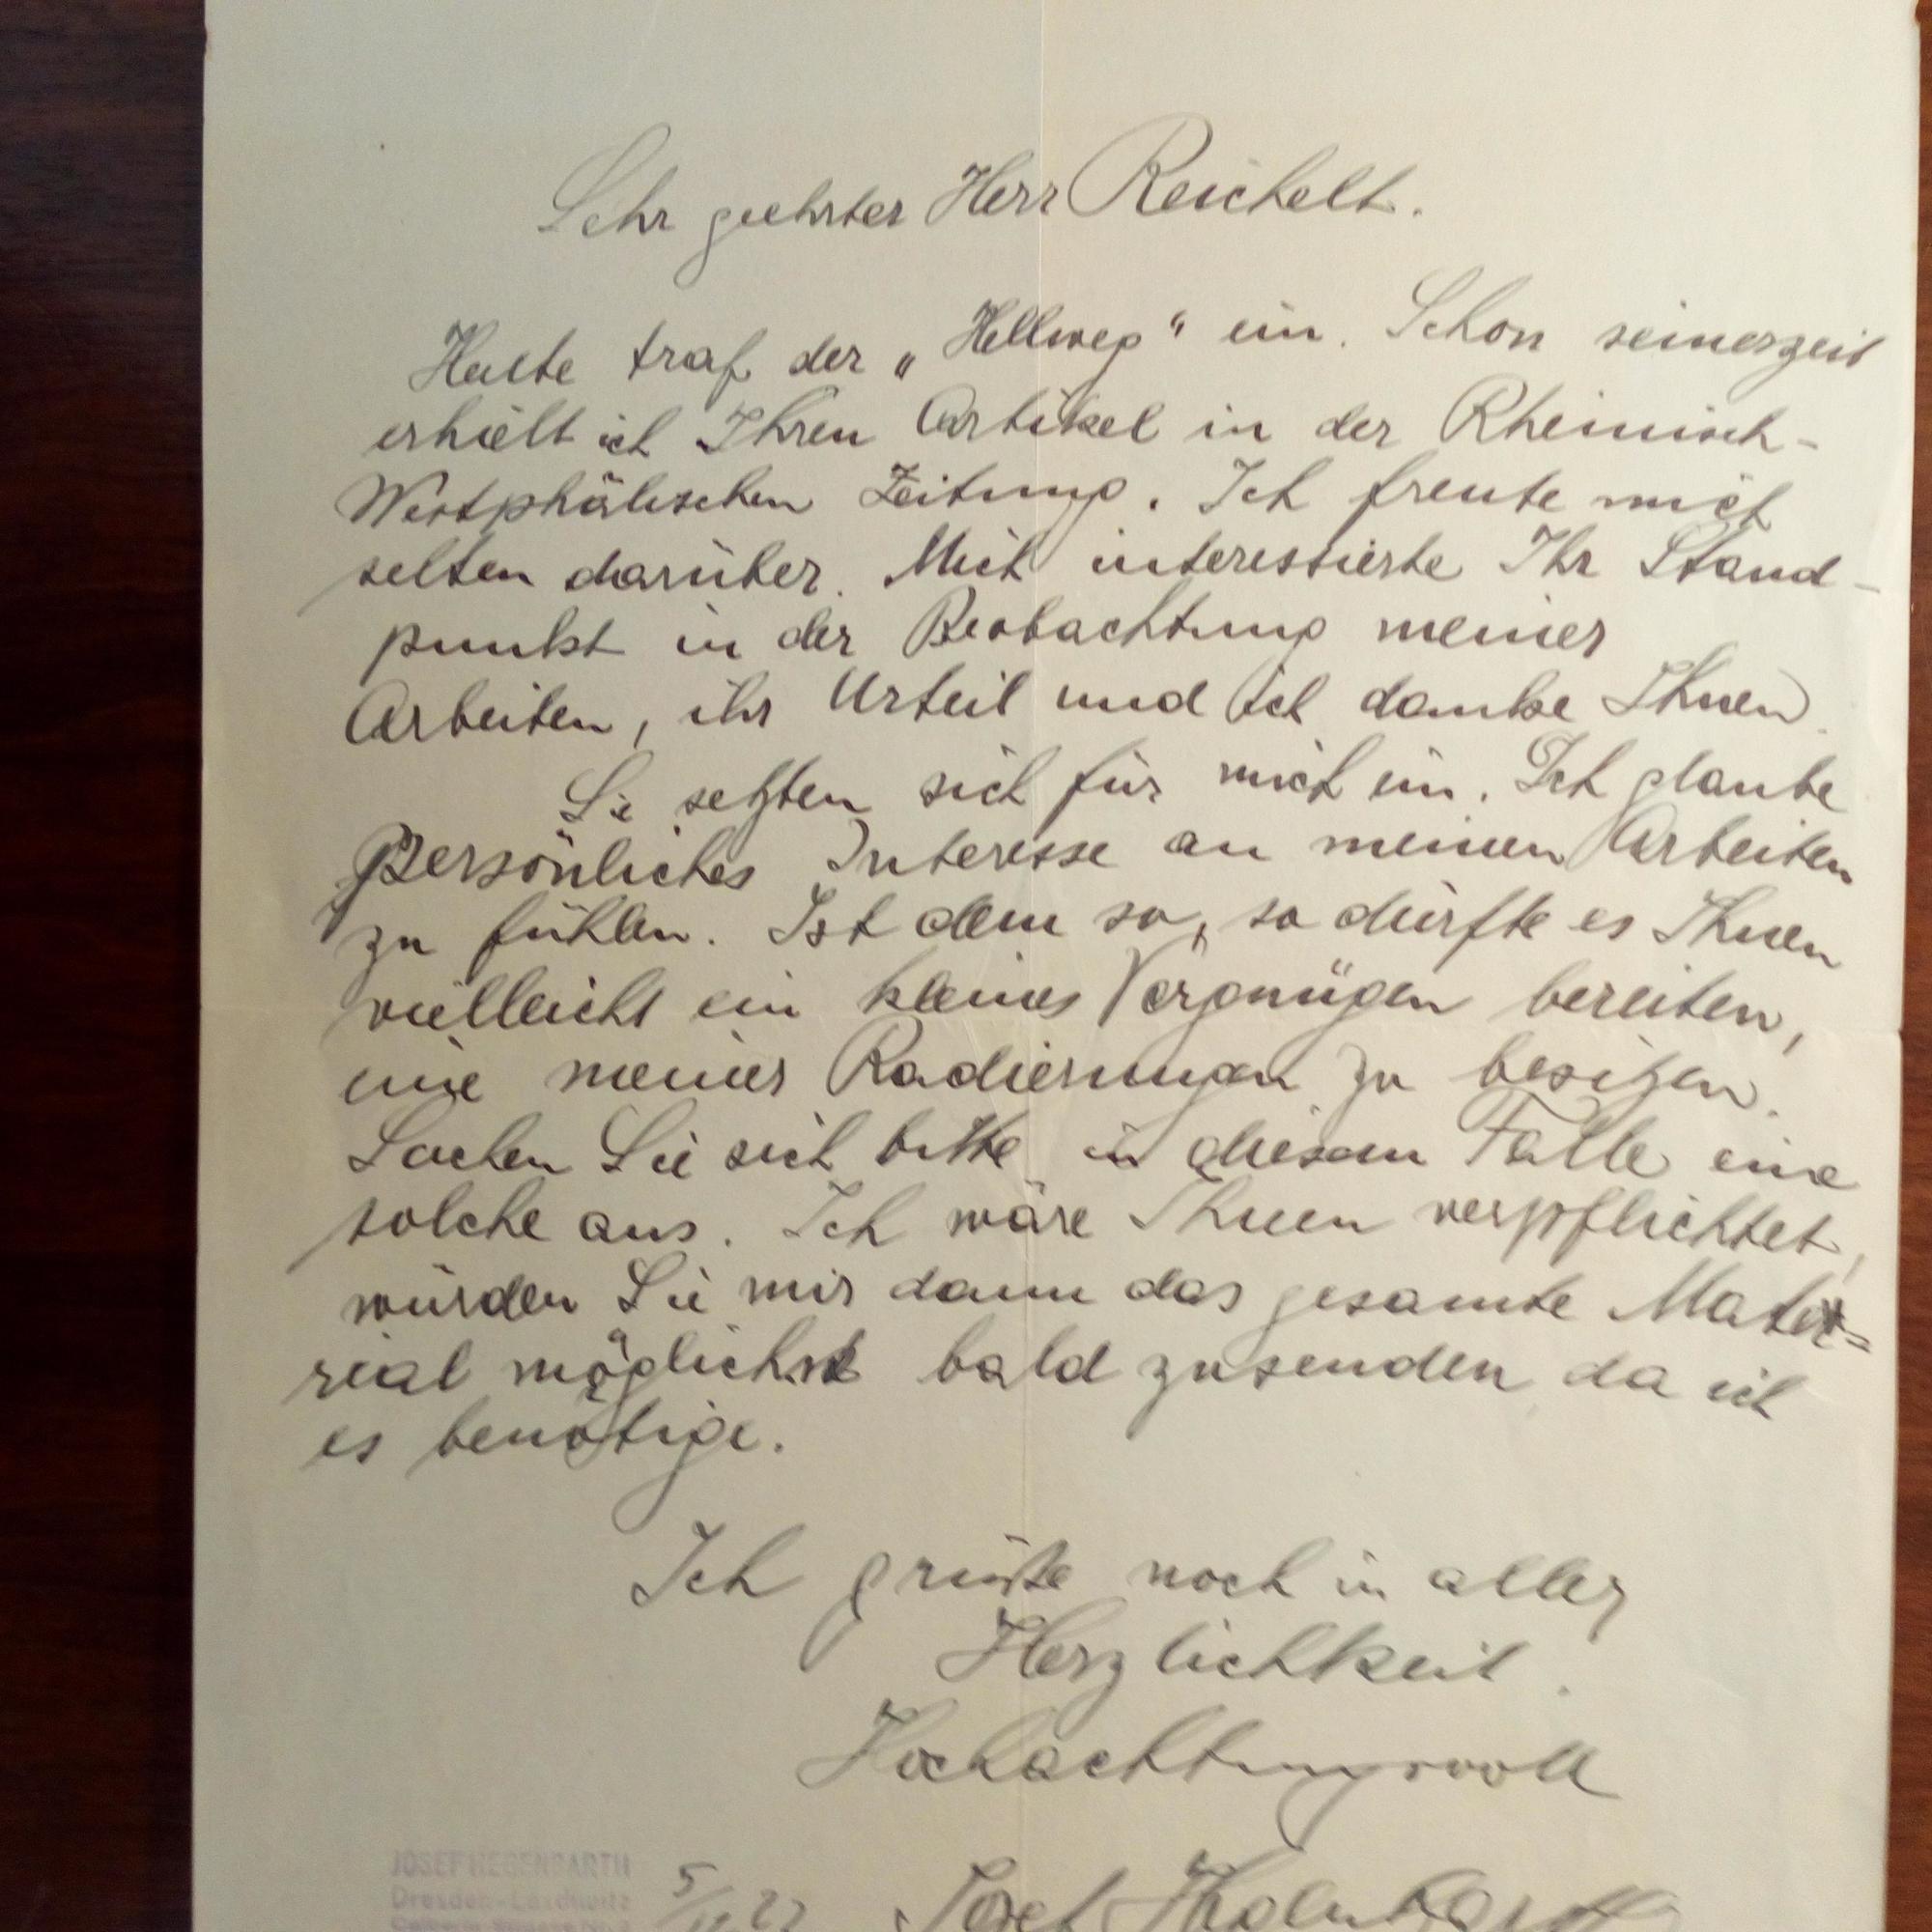 Sehr geehrter Herr Reichelt.
Heute traf der „Hellweg“ ein. Schon seinerzeit
erhielt ich Ihren Artikel in der Rheinisch-
Westphälischen Zeitung. Ich freute mich
selten darüber. Mich interessierte Ihr Stand-
punkt in der Beobachtung meiner
Arbeiten, ihr Urteil und ich danke Ihnen.
Sie setzten sich für mich ein. Ich glaube
Persönliches Interesse an meinen Arbeiten
zu fühlen. Ist dem so, so dürfte es Ihnen
vielleicht ein kleines Vergnügen bereiten,
eine meiner Radierungen zu besitzen.
Suchen Sie sich bitte in diesem Falle eine
solche aus. Ich wäre Ihnen verpflichtet,
würden Sie mir dann das gesamte Mate=
rial möglichst bald zusenden da ich
es benötige.
Ich grüße noch in aller
Herzlichkeit.
Hochachtungsvoll
JOSEF HEGENBARTH
Dresden-Loschwitz
Josef Hegenbarth